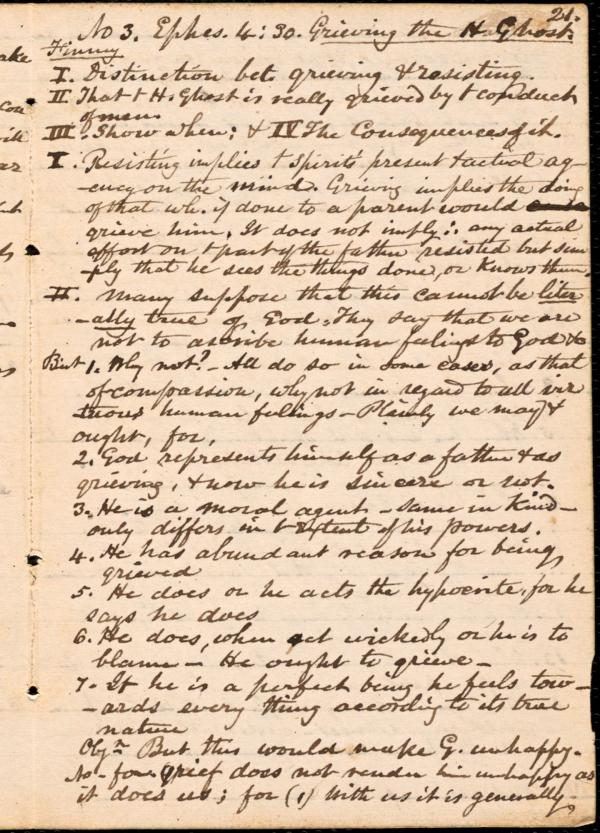 21.
No 3. Ephes. 4:30. Grieving the H. Ghost.
Finney
I. Distinction bet. grieving & resisting.
II. That t H. Ghost is really grieved by t conduct
of men
III. Show when; & IV The Consequences of it.
I. Resisting implies t spirit's present & actual ag-
-ency on the mind. Grieving implies the doing
of that wh. if done to a parent would
grieve him. It does not imply ∴ any actual
effort on t part of the father resisted but sim-
-ply that he sees the things done, or knows them.
II. Many suppose that this cannot be liter-
-ally true of God. They say that we are
not to ascribe human feelings to God &c
But 1. Why not? - All do so in some cases, as that
of compassion, why not in regard to all vir
tuous human feelings - Plainly we may &
ought, for,
2. God represents himself as a father & as
grieving, & now he is sincere or not.
3. He is a moral agent - same in kind -
only differs in t extent of his powers.
4. He has abundant reason for being
grieved
5. He does or he acts the hypocrite, for he
says he does
6. He does, when act wickedly or he is to
blame - He ought to grieve -
7. If he is a perfect being he feels tow-
-ards every thing according to its true
nature
Obj.n But this would make G. unhappy.
No - for grief does not render him unhappy as
it does us; for (1) With us it is generally